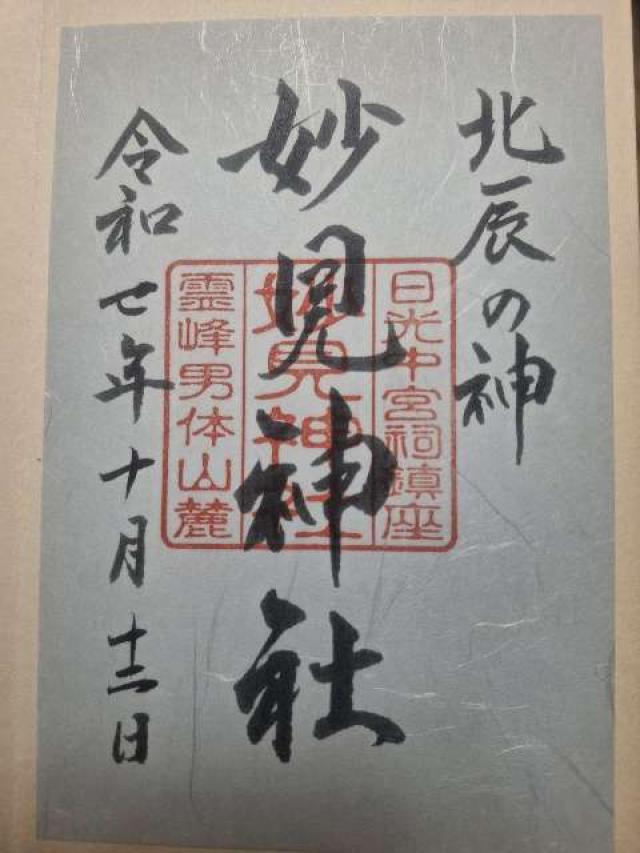 北辰の神
妙見神社
令和七年十月十二日
日光中宮祠鎮座
妙見神社
霊峰男体山麓